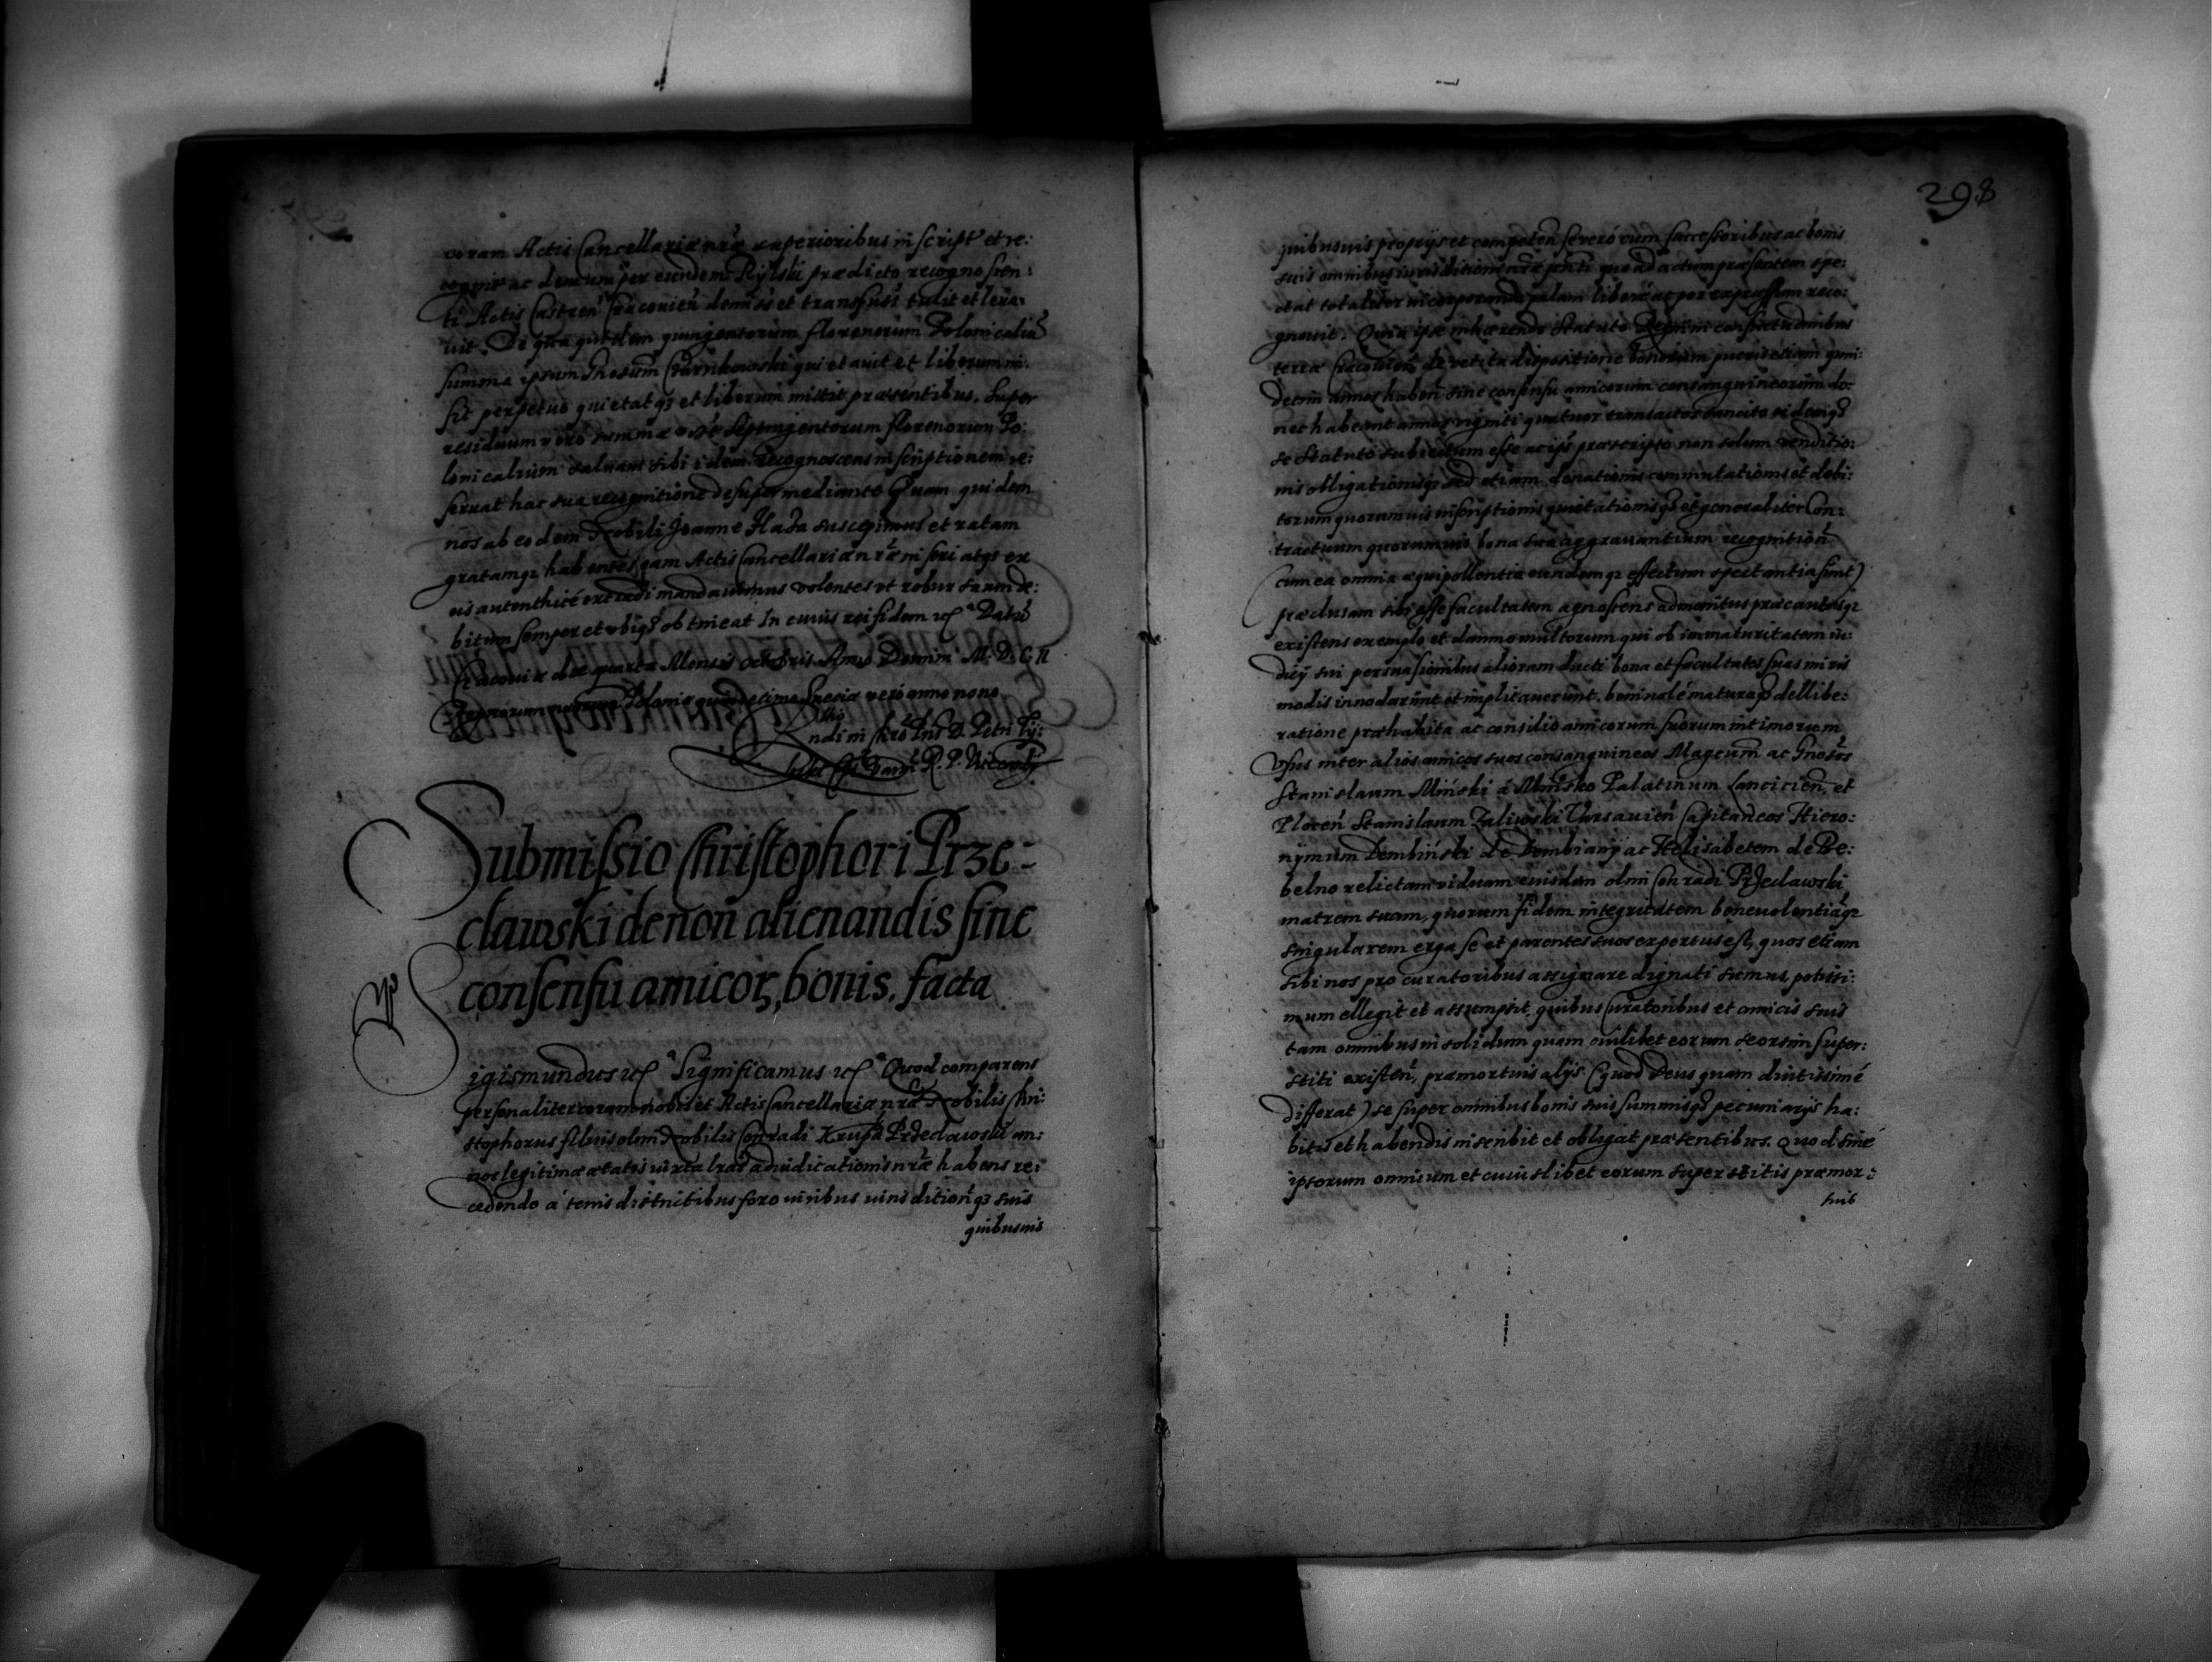 coram Actis Cancellariæ nræ superioribus inscript et re:
cognit ac demum per eundem Rylski prædicto recognoscen:
ti Actis Castren Cracovien demiss et transfuss tulit et leva:
vit. De qua quidem quingentorum florenorum Polonicaliu
summa ipsum Gnosum Czarnkowski quietavit et liberum mi:
sit perpetuo quietatqz et liberum mittit præsentibus. Super
residuum vero summæ Septingentorum florenorum Po:
lonicalium salvam sibi idem recognoscens inscriptionem re:
servat hac sua recognitione desuper mediante Quam quidem
nos ab eodem Nobili Joanne Hada suscepimus et ratam
gratamqz habentes eam Actis Cancellariæ nræ inseri atqz ex
eis autenthicé extradi mandavimus volentes ut robur suum de:
bitum semper et ubiqz obtineat In cuius rei fidem Datu
Cracoviæ die quarta Mensis octobris Anno Domini M. D. C II
Regnorum nostrorum Poloniæ quindecimo Sueciæ vero anno nono
D. Petri Ty:
R. P. Vicecancy
Submissio Christophori Prze-
clawski de non alienandis sine
consensu amicor, bonis. facta
igismundus Significamus Quod comparens
personaliter coram nobis et Actis Cancellariæ nræ Nobilis Chri:
stophorus filius olim Nobilis Conradi Krupa Przeclawski an:
nos legitimæ ætatis iuxta lras adiudicationis nræ habens re:
cedendo á terris districtibus foro iuribus iurisdition qz suis
quibusvis
298
quibusvis proprijs et competen se veró cum successoribus ac bonis
suis omnibus iurisditioni nræ pnti quo ad actum præsentem spe:
ctat totaliter incorporando palam liberé ac per expressum reco:
gnovit. Quia ipse inhærendo Statuto Regni ni consuetudinibus
terræ Cracovien de vetita dispositione bonorum pueris etiam quin:
decim annos haben sine consensu amicorum consanguineorum do:
nec habeant annos viginti quatuor transactos sancito eidemqz
se Statuto subiectum esse ac ipso præscripto non solum venditio:
nis obligationisqz sed etiam donationis commutationis et debi:
torum quorumvis inscriptionis quietationisqz et generaliter Con:
tractuum quorumvis bona sua aggravantium recognition
(cum ea omnia æquipollentia eundemqz effectum spectantia sunt)
præclusam sibi esse facultatem agnoscens admonitus præcautusqz
existens exemplo et damno multorum qui ob immaturitatem iu:
dicij sui persuasionibus aliorum ducti bona et facultates suas miris
modis innodarunt et implicaverunt. beninolé maturaqz dellibe:
ratione præhabita ac consilio amicorum suorum intimorum
Usus inter alios amicos suos consanguineos Magcum ac Gnosos
Stanislaum Miński á Mińsko Palatinum Lancicien, et
Plocen Stanislaum Zaliwski Varsavien Capitaneos Hiero:
nymum Dembiński de Dembiany ac Helisabetem de Be:
belno relictam viduam eiusdem olmi Conradi Przeclawski
matrem suam, quorum fidem integritatem benevolentiaqz
singularem erga se et parentes suos expertus est, quos etiam
sibi nos pro curatoribus assignare dignati sumus, potissi:
mum ellegit et assumpsit, quibus Curatoribus et amicis suis
tam omnibus in solidum quam cuilibet eorum seorsim super:
stiti existen, præmortuis alijs (quod Deus quam diutissimé
differat) se super omnibus bonis suis summisqz pecuniarijs ha:
bitis et habendis inscribit et obligat præsentibus. Quod sine
ipsorum omnium et cuiuslibet eorum superstitis præmor:
tuis